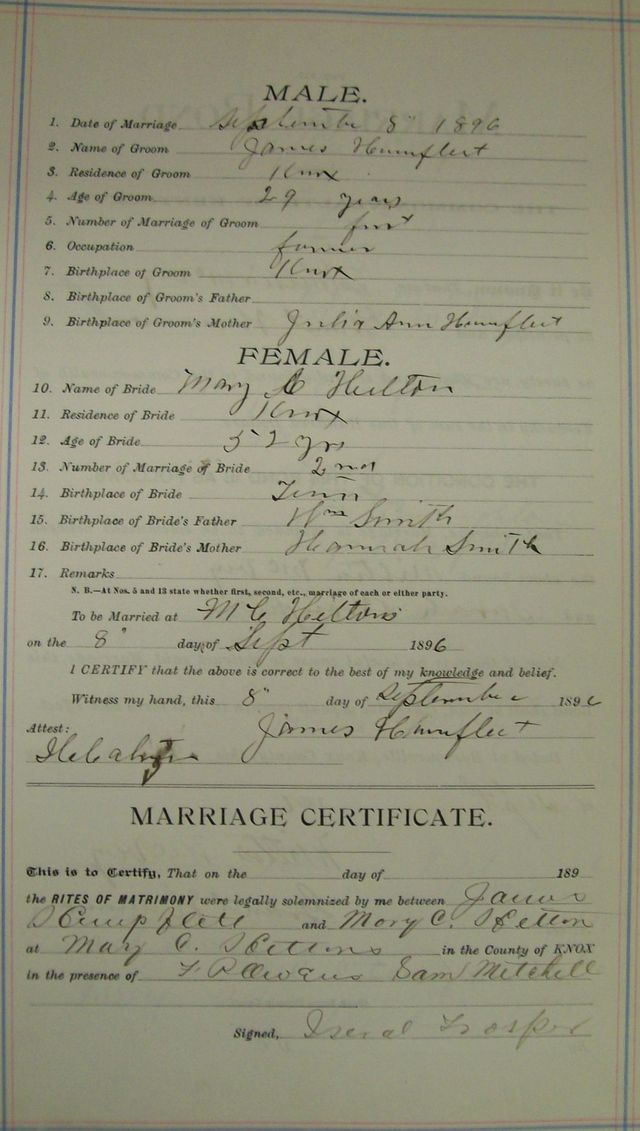 MALE.
1. Date of Marriage September 8" 1896
2. Name of Groom James Humfleet
3. Residence of Groom Knox
4. Age of Groom 29 years
5. Number of Marriage of Groom first
6. Occupation farmer
7. Birthplace of Groom Knox
8. Birthplace of Groom's Father
9. Birthplace of Groom's Mother Julia Ann Humfleet
FEMALE.
10. Name of Bride Mary C Helton
11. Residence of Bride Knox
12. Age of Bride 52 yrs
13. Number of Marriage of Bride 2nd
14. Birthplace of Bride Tenn
15. Birthplace of Bride's Father Wm Smith
16. Birthplace of Bride's Mother Hannah Smith
17. Remarks
N. B.—At Nos. 5 and 13 state whether first, second, etc., marriage of each or either party.
To be Married at M C Heltons
on the 8" day of Sept 1896
I CERTIFY that the above is correct to the best of my knowledge and belief.
Witness my hand, this 8" day of September 1896
Attest: James Humfleet
MARRIAGE CERTIFICATE.
This is to Certify, That on the day of 189
the RITES OF MATRIMONY were legally solemnized by me between James
and Mary C. Helton
at Mary C. Heltons in the County of KNOX
in the presence of Sam Mitchell
Signed,